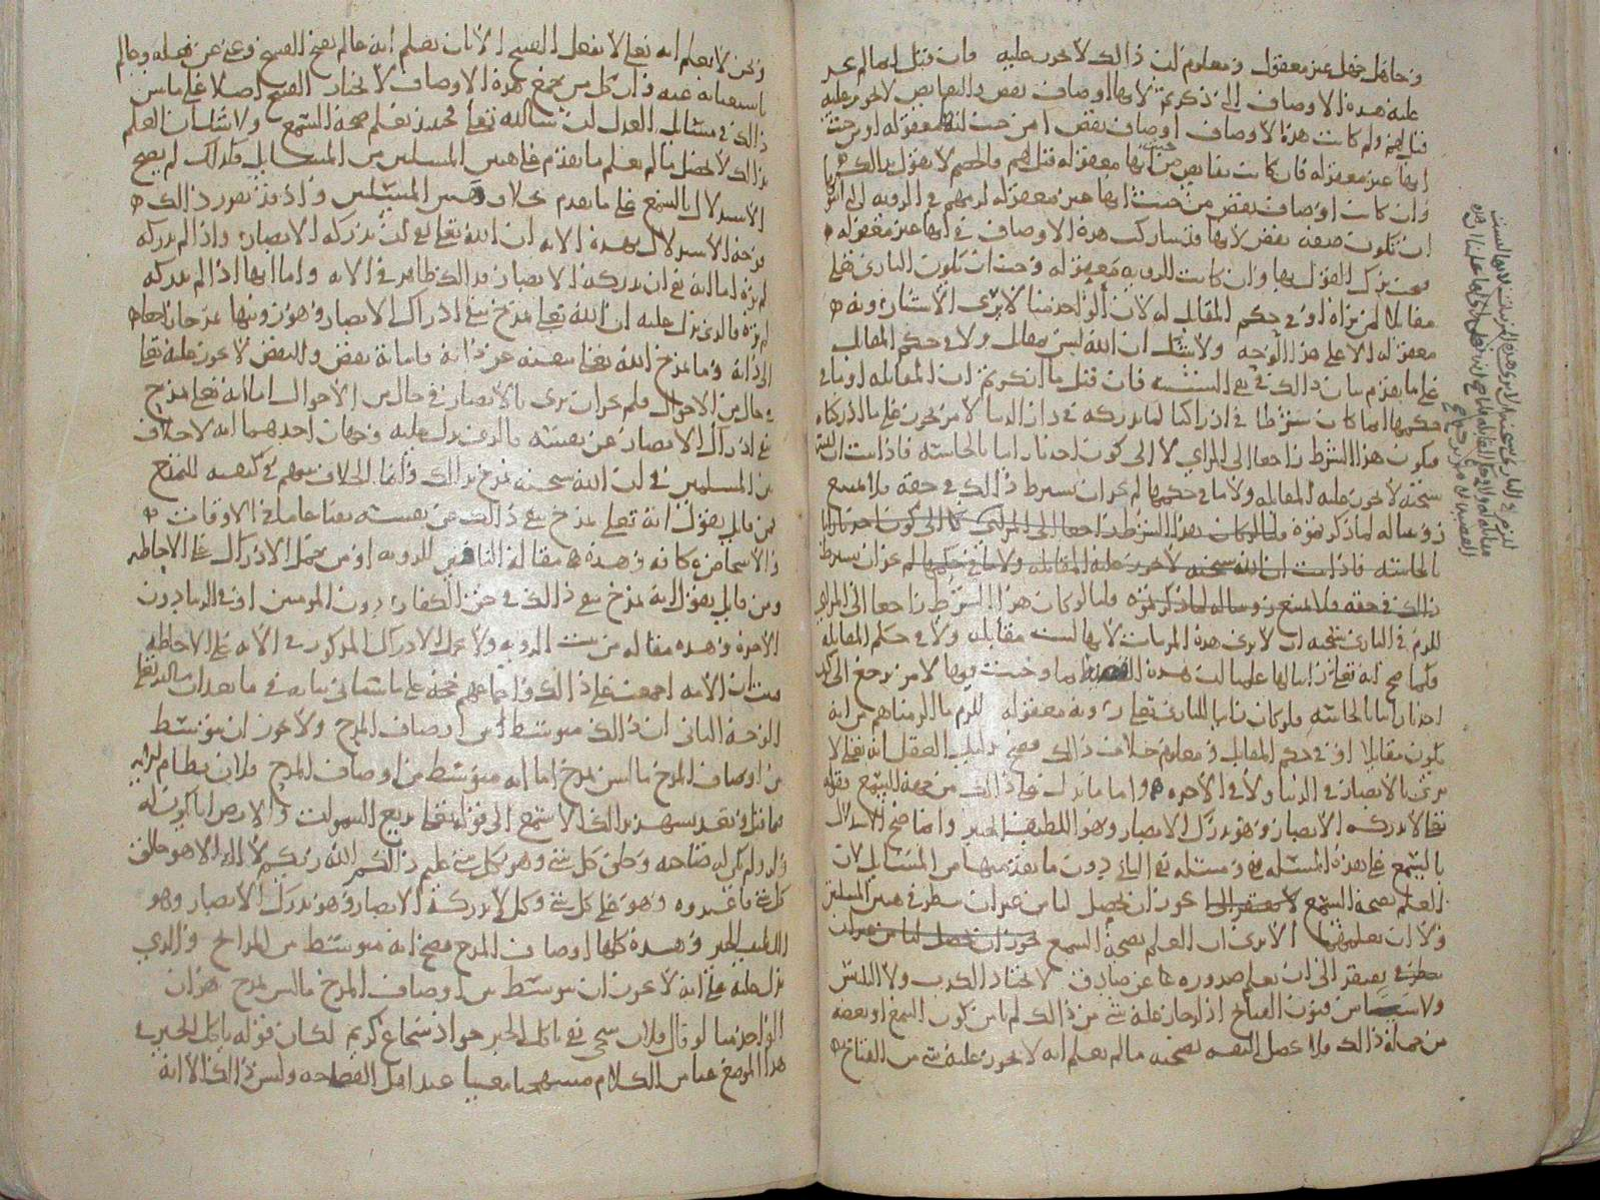 وجاهل جهل غير معقول ومعلوم ان ذالك لا يجوز عليه فان قيل انما لم يجز
عليه هذه الاوصاف التي ذكرتم لانها اوصاف نقص والنقايص لا تجوز عليه
قيل لهم ولم كانت هذه الاوصاف اوصاف نقص امن حيث انها معقوله او من حيث
انها غير معقوله فان كانت نقايص من حيث انها معقوله قيل لهم والخصم لا يقول بذالك
وان كانت اوصاف نقص من حيث انها غير معقوله لزمهم في الرويه
ان تكون صفه نقص لانها قد شاركت هذه الاوصاف في انها غير معقوله
فيجب ترك القول بها وان كانت الرويه معقوله وجب ان يكون الباري تعلى
مقابلا لمن يراه او في حكم المقابل له لان الواحد منا لا يرى الاشيا رويه
معقوله الا على هذا الوجه ولا شك ان الله ليس بمقابل ولا في حكم المقابل
على ما تقدم بيان ذالك في نفي التشبيه فان قيل ما انكرتم ان المقابله او ما في
حكمها انما كانت شرطا في ادراكنا لما ندركه في دار الدنيا لامر يجوز على ما ادركناه
فيكون هذا الشرط راجعا الى المراي لا الى كون احدنا رايا بالحاسه فاذا ثبت ان الله
سبحنه لا تجوز عليه المقابله ولا ما في حكمها لم يجز ان يشترط ذالك في حقه فلا تمتنع
رويتنا له لما ذكرتموه
بالحاسه فاذا ثبت ان الله سبحنه لا تجوز عليه المقابله ولا ما في حكمها لم يجز ان يشترط
ذالك في حقه فلا تمتنع رويتنا له لما ذكرتموه قلنا لو كان هذا الشرط راجعا الى المراي
للزم في الباري سبحنه ان لا يرى هذه المريات لانها ليست مقابله ولا في حكم المقابله
فلما صح انه تعلى راي لها علمنا ان هذه
احدنا رايا بالحاسه فلو كان رايا للباري تعلى رويه معقوله للزم ما الزمناهم من انه
يكون مقابلا او في حكم المقابل ومعلوم خلاف ذالك فصح بدليل العقل انه تعلى لا
يرى بالابصار في الدنيا ولا في الاخره واما ما يدل على ذالك من جهة السمع فقوله
تعلى لا تدركه الابصار وهو يدرك الابصار وهو اللطيف الخبير وانما صح الاستدلال
بالسمع على هذه المسئله ومسئلة نفي الثاني دون ما تقدمهما من المسايل لان
العلم بصحة السمع
ولا ان نعلمهما الا ترى ان العلم بصحة السمع
يفتقر الى ان نعلم صدوره عن صادق لا يختار الكذب ولا التلبيس
ولا شيئا من فنون القبايح اذ لو جاز عليه شي من ذالك لم نامن كون السمع او بعضه
من جملة ذالك فلا تحصل الثقه بصحته ما لم نعلم انه لا يجوز عليه شي من القبايح
ونحن لا نعلم انه تعلى لا يفعل القبيح الا بان نعلم انه عالم بقبح القبيح وغني عن فعله وعالم
باستغنايه عنه وان كل من جمع هذه الاوصاف لا يختار القبيح اصلا على ما سن
ذالك في مسايل العدل ان شا الله تعلى فحينئذ نعلم صحة السمع ولا شك ان العلم
بذالك لا يحصل ما لم نعلم ما تقدم هاتين المسئلتين من المسايل فلذلك لم يصح
الاستدلال بالسمع على ما تقدم بخلاف هاتين المسئلتين واذ قد تقرر ذالك
فوجه الاستدلال بهذه الايه ان الله تعلى نفى ان تدركه الابصار واذا لم تدركه
لم تره اما انه نفى ان تدركه الابصار فذالك ظاهر في الايه واما انها اذا لم تدركه
لم تره فالذي يدل عليه ان الله تعلى تمدح بنفي ادراك الابصار وهو رويتها مدحا راجعا
الى ذاته وما تمدح الله تعلى بنفيه عن ذاته فاثباته نقص والنقص لا يجوز عليه تعلى
في حال من الاحوال فلم يجز ان يرى بالابصار في حال من الاحوال اما انه تعلى تمدح
بنفي ادراك الابصار عن نفسه فالذي يدل عليه وجهان احدهما انه لا خلاف
بين المسلمين في ان الله سبحنه تمدح بذالك وانما الخلاف بينهم في كيفيه التمدح
فمن قايل يقول انه تعلى تمدح بنفي ذالك عن نفسه نفيا عاما في الاوقات
والاشخاص كافه وهذه مقالة النافين للرويه او من يحمل الادراك على الاحاطه
ومن قايل يقول انه تمدح بنفي ذالك في حق الكفار دون المومنين او في الدنيا دون
الاخره وهذه مقاله من يثبت الرويه ولا يحمل الادراك المذكور في الايه على الاحاطه
فثبت ان الامه اجمعت على ذالك واجماعهم حجه على ما سياتي بيانه في ما بعد ان شا الله تعلى
الوجه الثاني ان ذالك متوسط بين اوصاف المدح ولا يجوز ان يتوسط
بين اوصاف المدح ما ليس بمدح اما انه متوسط بين اوصاف المدح فلان نظام الايه
ما قبل وبعد يشهد بذالك الا تسمع الى قوله تعلى بديع السموات والارض انى يكون له
ولد ولم تكن له صاحبه وخلق كل شي وهو بكل شي عليم ذالكم الله ربكم لا اله الا هو خالق
كل شي فاعبدوه وهو على كل شي وكيل لا تدركه الابصار وهو يدرك الابصار وهو
اللطيف الخبير وهذه كلها اوصاف المدح فصح انه متوسط بين المدايح والذي
يدل عليه على انه لا يجوز ان يتوسط بين اوصاف المدح ما ليس بمدح هو ان
الواحد منا لو قال فلان سخي تقي ياكل الخبز جواد شجاع كريم لكان قوله ياكل الخبز في
هذا الموضع عيا من الكلام مستهجنا معيبا عند اهل الفصاحه وليس ذالك الا انه